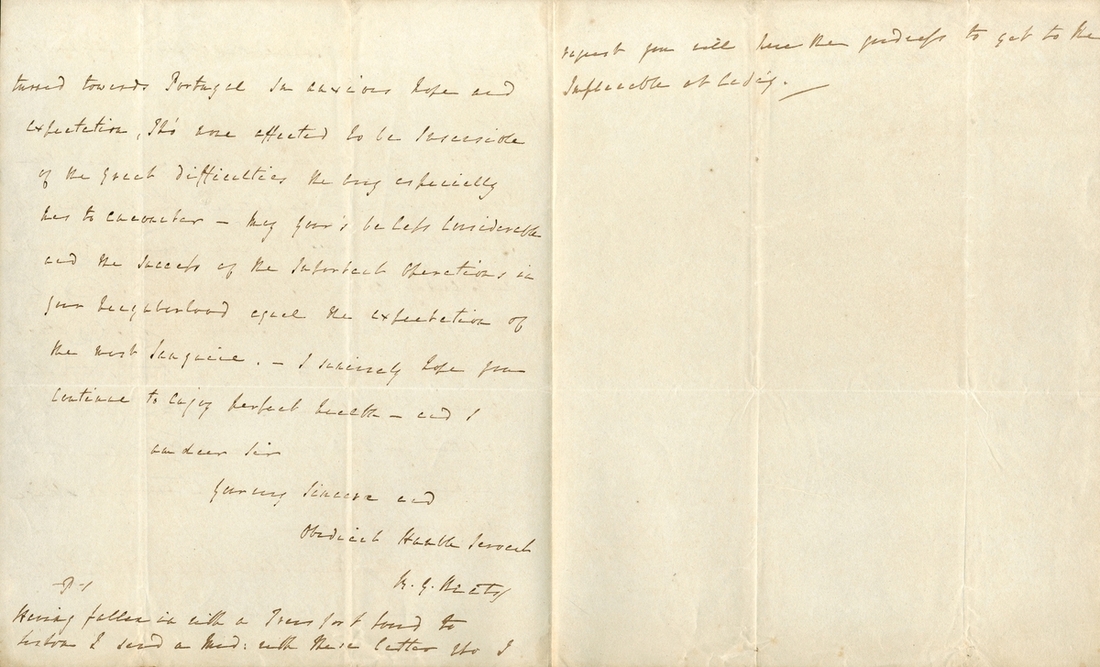 turned towards Portugal in anxious hope and
expectation, tho' none affected to be Insensible
of the great difficulties the Army especially
has to encounter – May your's be less Considerable
and the success of the Important Operations in
your Neighbourhood equal the expectation of
the most Sanguine. – I sincerely hope you
Continue to enjoy perfect health – and I
am dear Sir
Your very Sincere and
Obedient Humble Servant
R. G. Keats
P.S
Having fallen in with a Transport bound to
Lisbon I send a Mid: with these letters who I
request you will have the goodness to get to the
Implacable at Cadiz.